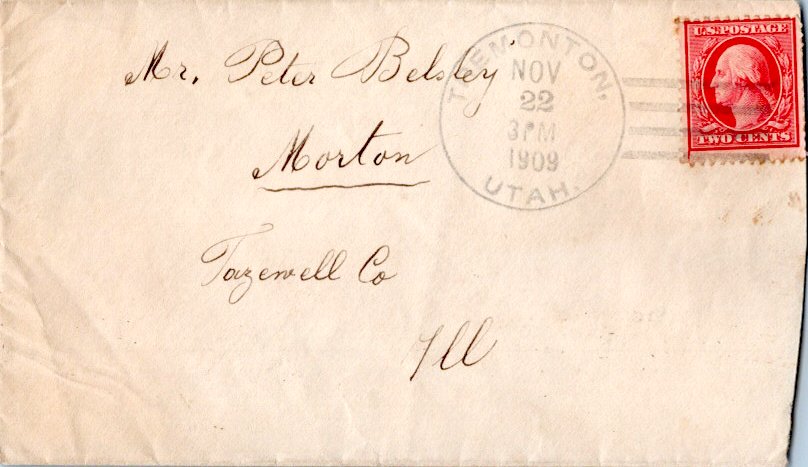 Mr. Peter Belsley
Morton
Tazewell Co
Ill
TREMONTON,
NOV
22
3PM
1909
UTAH.
U.S. POSTAGE
TWO CENTS